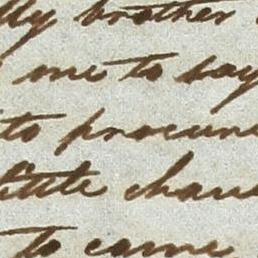 My brother
me to say
to procure
little chan
to come